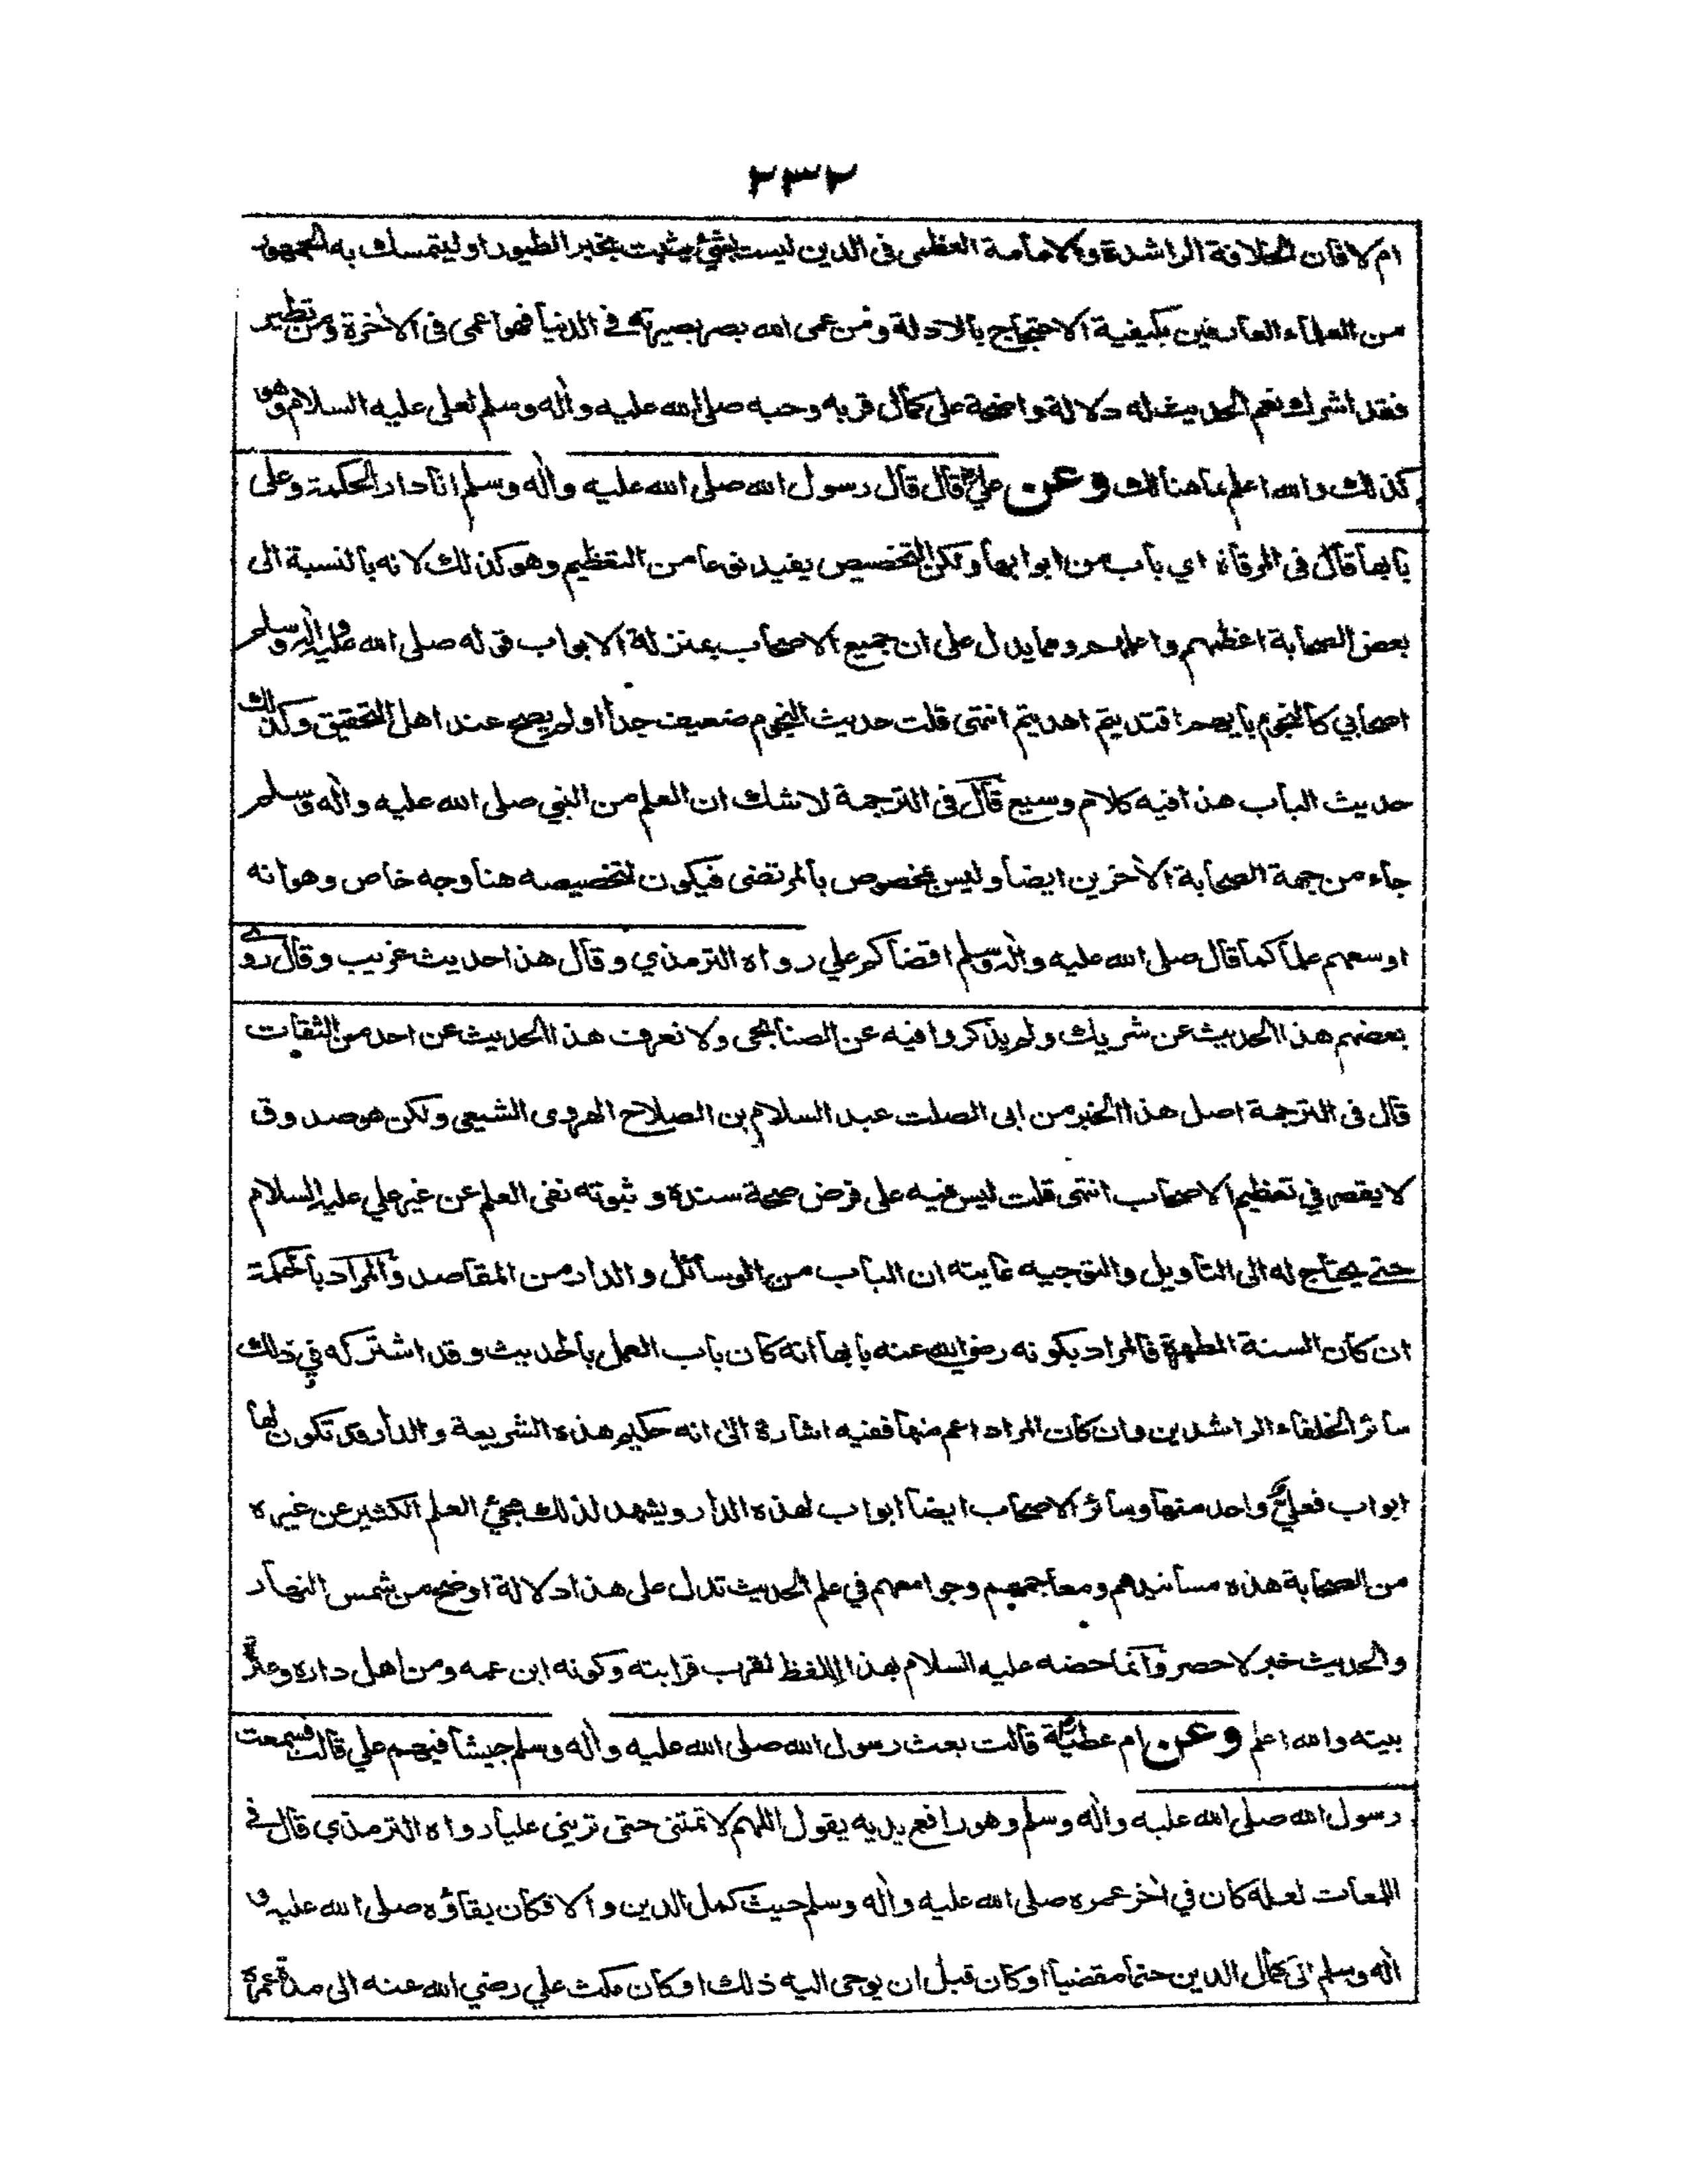 ٢٣٢
ام لا فان الخلافة الراشدة والامامة العظمى فى الدين ليست بشيء يثبت بخبر الطيور او ليتمسك به الجمهور
من العلماء العارفين بكيفية الاحتجاج بالادلة ومن عمى الله بصر بصيرته فى الدنيا فهو اعمى فى الاخرة ومن تطير
فقد اشرك نعم الحديث له دلالة واضحة على كمال قربه وحبه صلى الله عليه واٰله وسلم لعلى عليه السلام وهو
كذلك والله اعلم بما هنالك وعن علي قال قال رسول الله صلى الله عليه واٰله وسلم انا دار الحكمة وعلى
بابها قال فى المرقاة اي باب من ابوابها ولكن التخصيص يفيد نوعا من التعظيم وهو كذلك لانه بالنسبة الى
بعض الصحابة اعظمهم واعلمهم ومما يدل على ان جميع الاصحاب بمنزلة الابواب قوله صلى الله عليه واٰله وسلم
اصحابي كالنجوم بايهم اقتديتم اهديتم انتهى قلت حديث النجوم ضعيف جدا او لم يصح عند اهل التحقيق وكذلك
حديث الباب هذا فيه كلام وسيع قال فى الترجمة لا شك ان العلم من النبي صلى الله عليه واٰله وسلم
جاء من جهة الصحابة الاٰخرين ايضا وليس بمخصوص بالمرتضى فيكون لتخصيصه هنا وجه خاص وهو انه
اوسعهم علما كما قال صلى الله عليه واٰله وسلم اقضاكم علي رواه الترمذي وقال هذا حديث غريب وقال روى
بعضهم هذا الحديث عن شريك ولم يذكروا فيه عن الصنابحى ولا نعرف هذا الحديث عن احد من الثقات
قال فى الترجمة اصل هذا الخبر من ابى الصلت عبد السلام بن الصلاح الهروى الشيعى ولكن هو صدوق
لا يقصر في تعظيم الاصحاب انتهى قلت ليس فيه على فرض صحة سنده وثبوته نفى العلم عن غير علي عليه السلام
حتى يحتاج له الى التاويل والتوجيه غايته ان الباب من الوسائل والدار من المقاصد والمراد بالحكمة
ان كان السنة المطهرة فالمراد بكونه رضي الله عنه بابها انه كان باب العمل بالحديث وقد اشترك في ذلك
سائر الخلفاء الراشدين وان كان المراد اعم منها ففيه اشارة الى انه حكيم هذه الشريعة والدار قد تكون لها
ابواب فعلي واحد منها وسائر الاصحاب ايضا ابواب لهذه الدار ويشهد لذلك مجيء العلم الكثير عن غيره
من الصحابة هذه مسانيدهم ومعاجمهم وجوامعهم في علم الحديث تدل على هذا دلالة اوضح من شمس النهار
والحديث خبر لا حصر وانما خصه عليه السلام بهذا اللفظ لقرب قرابته وكونه ابن عمه ومن اهل داره وعترة
بيته والله اعلم وعن ام عطية قالت بعث رسول الله صلى الله عليه واٰله وسلم جيشا فيهم علي قالت فسمعت
رسول الله صلى الله عليه واٰله وسلم وهو رافع يديه يقول اللهم لا تمتنى حتى تريني عليا رواه الترمذي قال فى
اللمعات لعله كان في اٰخر عمره صلى الله عليه واٰله وسلم حيث كمل الدين والا فكان بقاؤه صلى الله عليه و
اٰله وسلم الى كمال الدين حتما مقضيا او كان قبل ان يوحى اليه ذلك او كان مكث علي رضي الله عنه الى مدة عمره